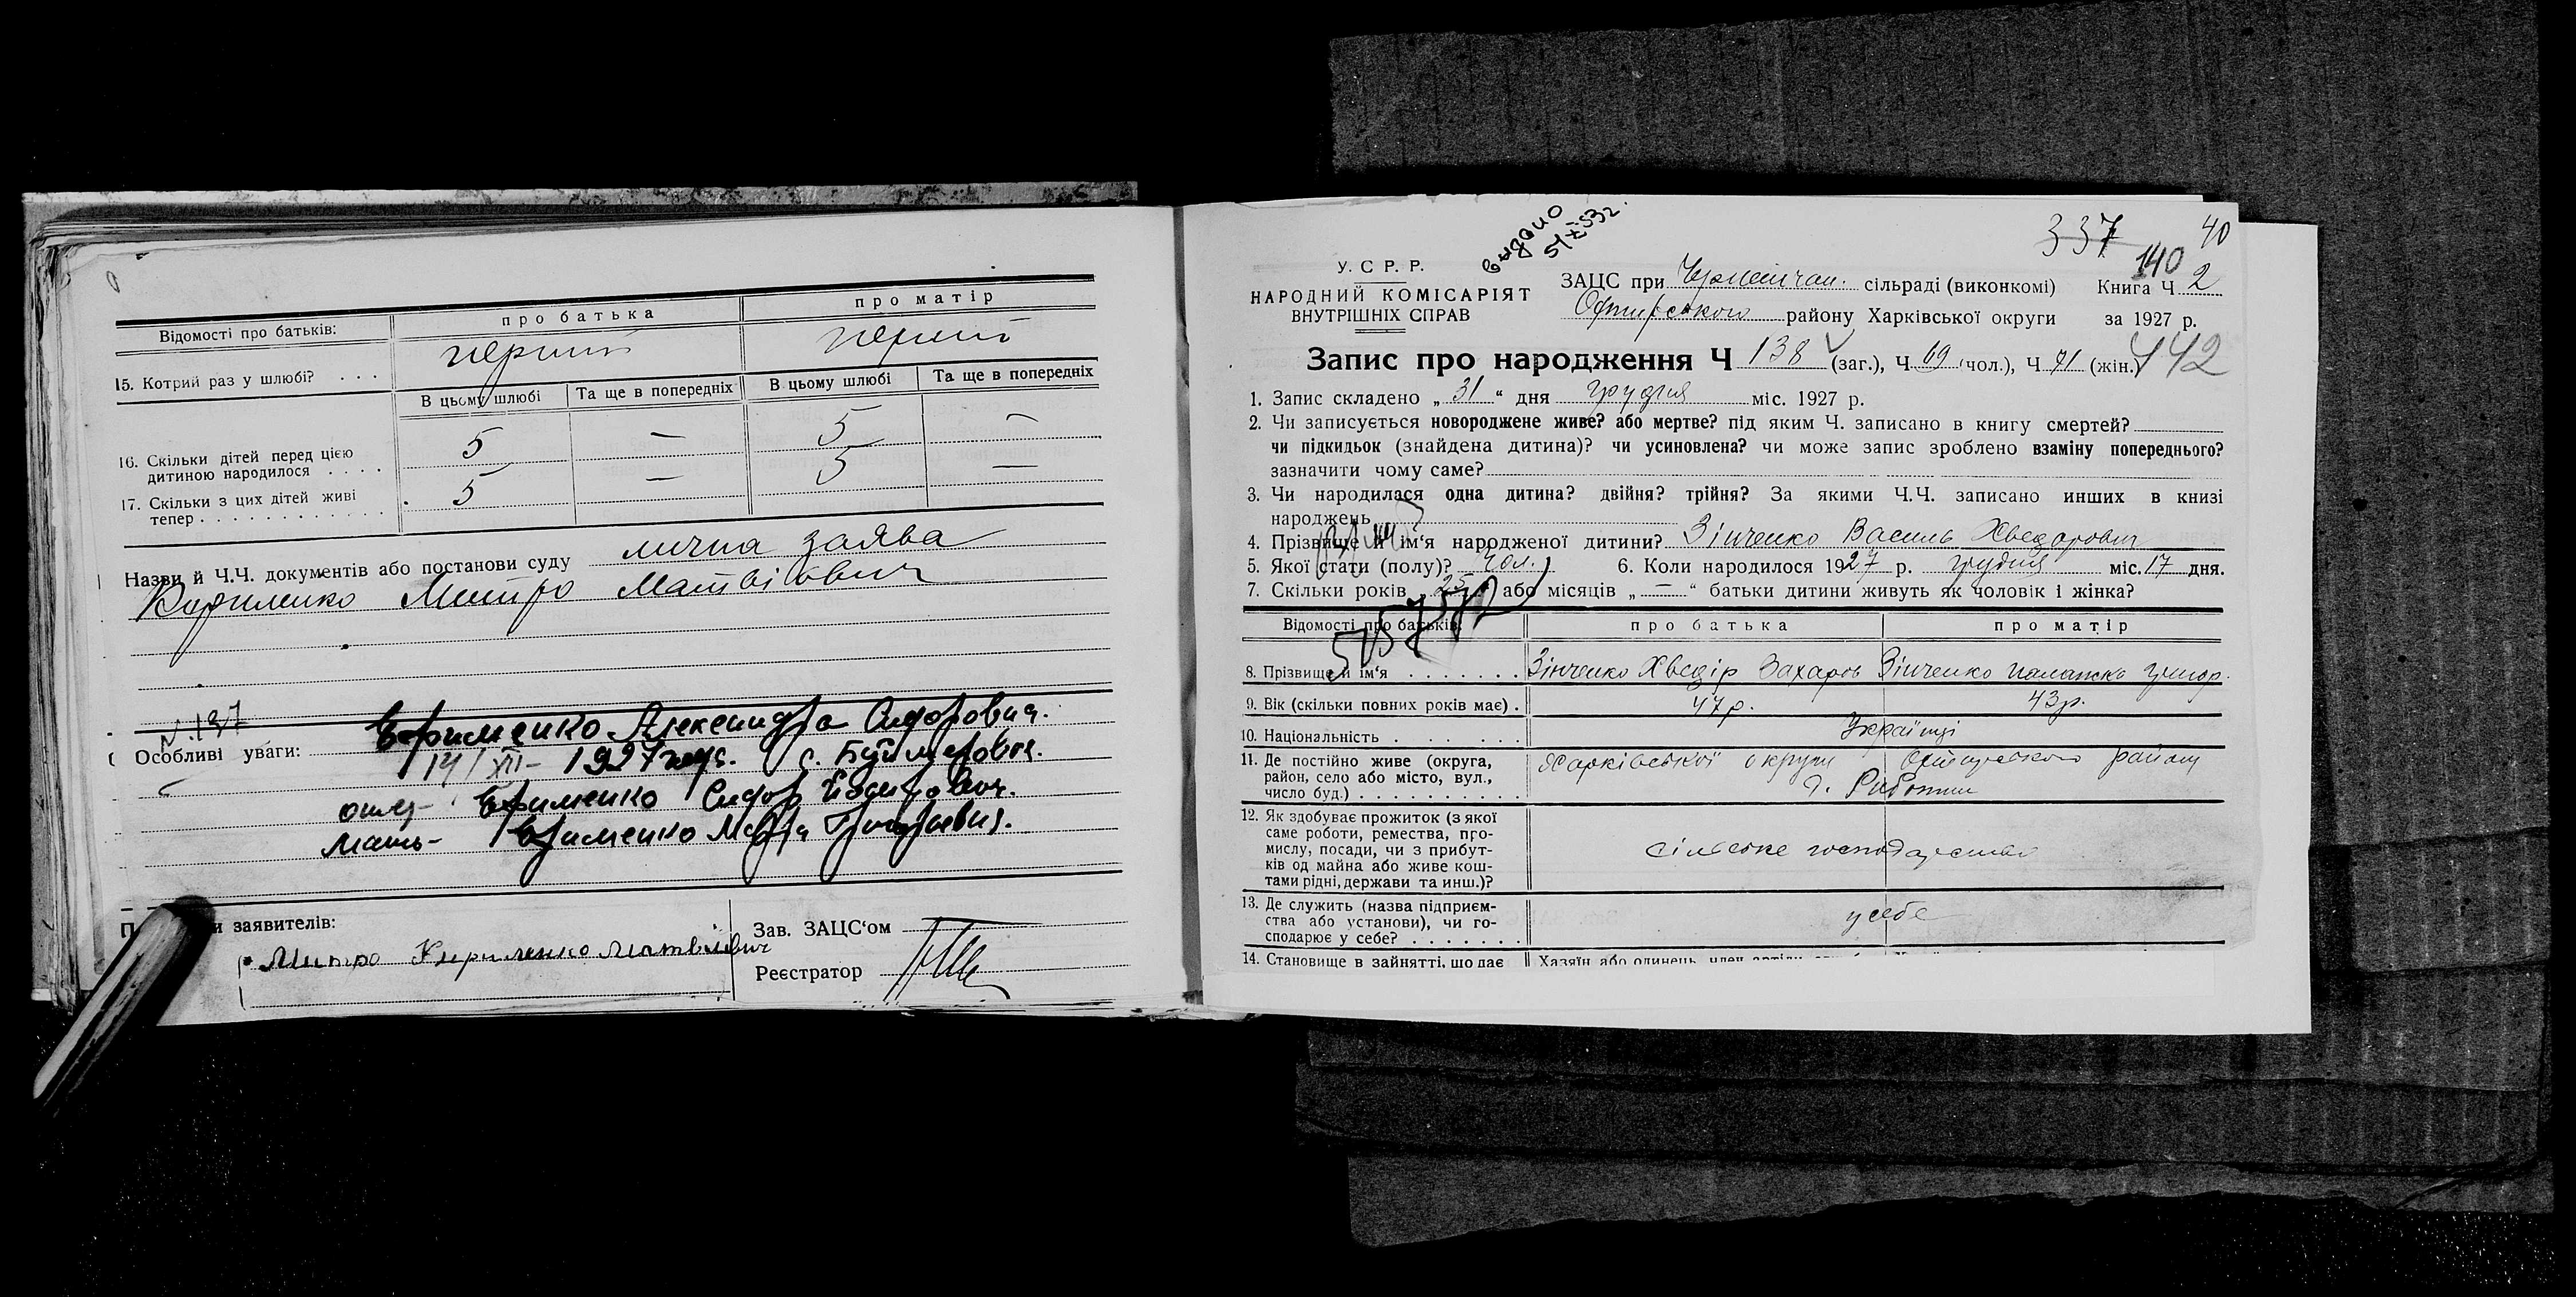 Відомості про батьків: про батька про матір
15. Котрий раз у шлюбі? . . . перший перший
В цьому шлюбі Та ще в попередніх В цьому шлюбі Та ще в попередніх
16. Скільки дітей перед цією
дитиною народилося . . . . 5 — 5 —
17. Скільки з цих дітей живі
тепер . . . . . . . . . . . . 5 — 5 —
Назви й Ч.Ч. документів або постанови суду лична заява
Кириленко Митро Матвійович
N. 137
Особливі уваги: Ефименко Александра Сидоровна.
14/XII – 1927 года. с. Буймеровка.
отец – Ефименко Сидор
мать – Ефименко Григорьевна.
и заявителів:
Митро Кириленко Матвієвич
Зав. ЗАЦС'ом
Реєстратор
337 40
140
видано
У. С Р. Р.
НАРОДНИЙ КОМІСАРІЯТ
ВНУТРІШНІХ СПРАВ
ЗАЦС при сільраді (виконкомі) Книга Ч 2
району Харківської округи за 1927 р.
Запис про народження Ч 138 (заг.), Ч 69 (чол.), Ч 71 (жін.) 142
1. Запис складено „ 31 “ дня грудня міс. 1927 р.
2. Чи записується новороджене живе? або мертве? під яким Ч. записано в книгу смертей?
чи підкидьок (знайдена дитина)? чи усиновлена? чи може запис зроблено взаміну попереднього?
зазначити чому саме?
3. Чи народилася одна дитина? двійня? трійня? За якими Ч.Ч. записано инших в книзі
народжень
4. Прізвище й ім‘я народженої дитини? Зінченко Василь Хведорович
5. Якої стати (полу)? чол. 6. Коли народилося 1927 р. грудня міс. 17 дня.
7. Скільки років „ 25 “ або місяців „ — “ батьки дитини живуть як чоловік і жінка?
Відомості про батьків: про батька про матір
8. Прізвище й ім‘я . . . . . . . Зінченко Хведір Захаров Зінченко Палажка Григор.
9. Вік (скільки повних років має) . 47 р. 43 р.
10. Національність . . . . . . Українці
11. Де постійно живе (округа,
район, село або місто, вул.,
число буд.) . . . . . . . . . . Харківської округи району
12. Як здобуває прожиток (з якої
саме роботи, ремества, про-
мислу, посади, чи з прибут-
ків од майна або живе кош-
тами рідні, держави та инш.)? сільське господарство
13. Де служить (назва підприєм-
ства або установи), чи го-
сподарює у себе? . . . . . . . у себе
14. Становище в зайнятті, що дає Хазяїн або одинець, член артіли